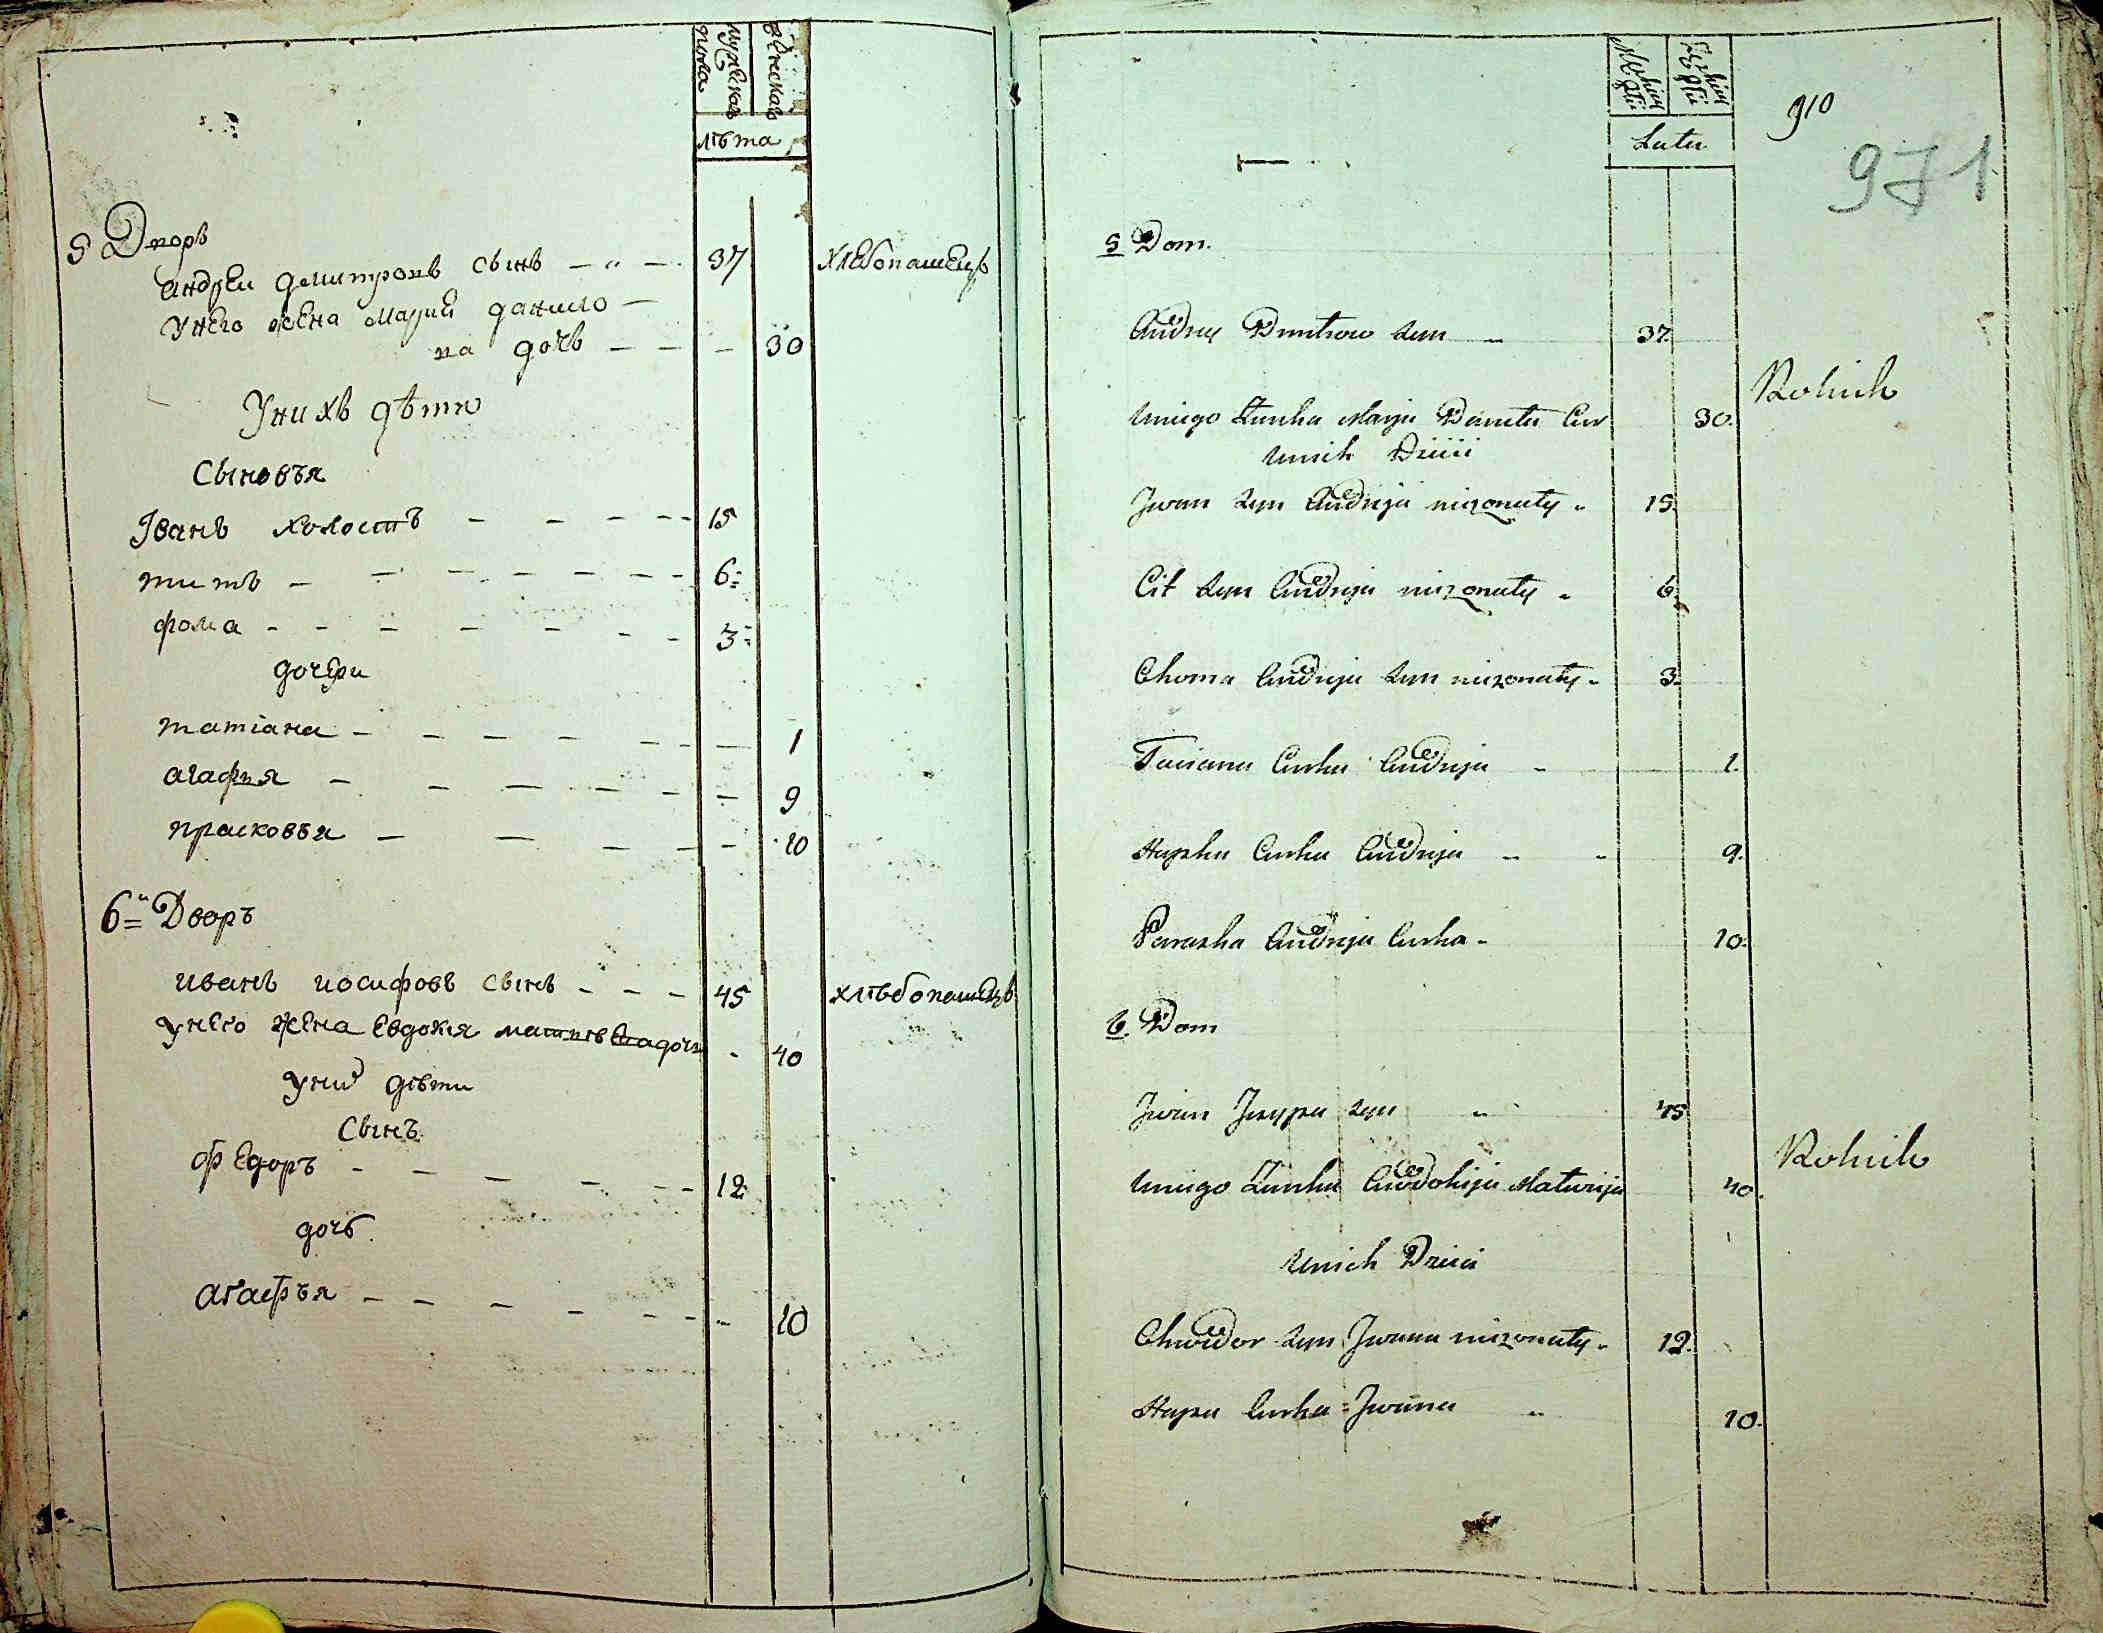 мужеска пола
женска
лѣта
5 Дворъ
андреи димитровъ сынъ 37 хлебопашецъ
унего жена мария данило
ва дочь 30
Унихъ дѣти
Сыновья
Іванъ холостъ 15
титъ 6
фома 3
дочери
татіана 1
агафья 9
прасковья 10
6й Дворъ
иванъ иосифовъ сынъ 45 хлѣбопашецъ
унего жена Евдокия матвѣева дочь 40
уних дѣти
Сынъ
фЕдоръ 12
дочь
агафъя 10
Latu
910
971
5 Dom.
Andrey Dmitrow Syn 37.
Uniego Zunka Marja Daniła Cur 30. Rolnik
Unich Dzieci
Jwan Syn Andreja niezonaty 15.
Cit Syn Andreja niezonaty 6.
Choma Andreja Syn niezonaty 3.
Taciana Curka Andreja 1.
Hapka Curka Andreja 9.
Paraska Andreja Curka 10.
6. Dom
Jwan Jozypa Syn 45
Uniego Zunka Awdokija Matwija 40. Rolnik
Unich Dzieci
Chwedor Syn Jwana niezonaty 12.
Hapa Curka Jwana 10.